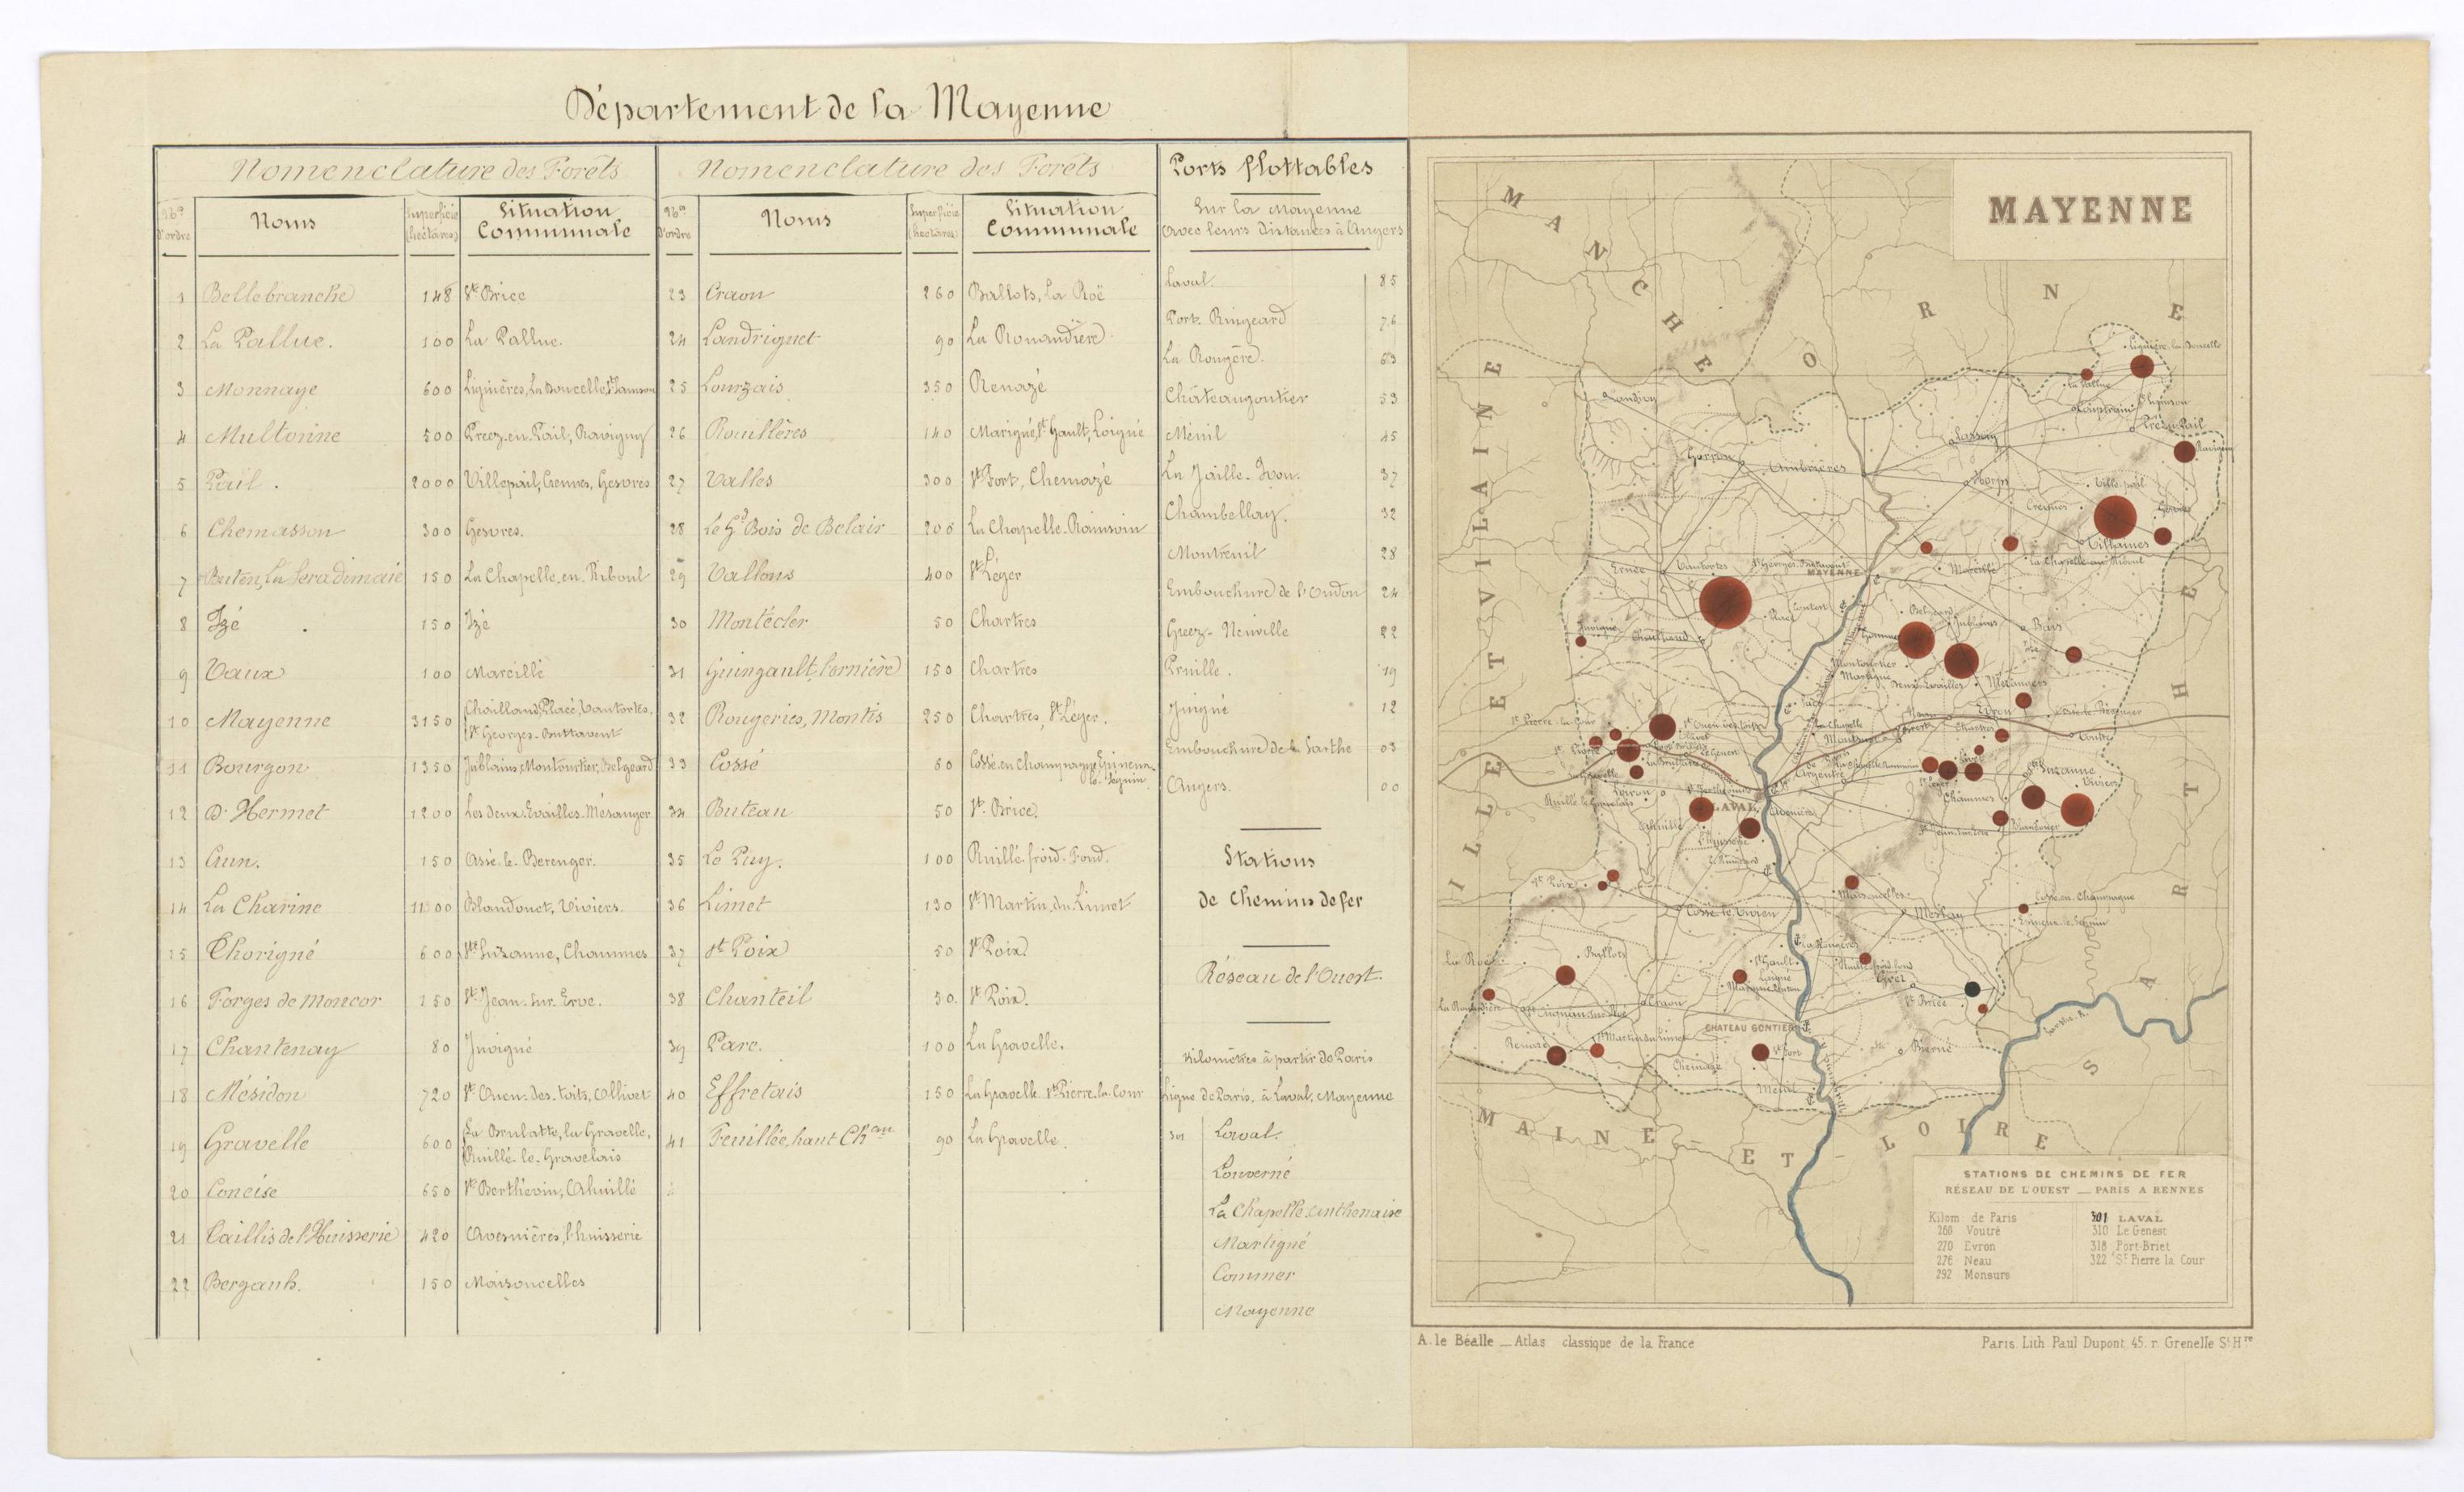 Département de la Mayenne
Nomenclature des Forêts
Nos d'ordre Noms Superficie (hectares) Situation Communale
1 Bellebranche 148 St Brice
2 La Pallue. 100 La Pallue.
3 Monnaye 600 Lignières, La Doucelle, St Samson
4 Multonne 500 Preez-en-Pail, Ravigny
5 Pail. 2000 Villepail, Crennes, Gesvres
6 Chemasson 300 Gesvres.
7 Buton, La 150 La Chapelle-en-Riboul
8 Izé 150 Izé
9 Vaux 100 Marcillé
10 Mayenne 3150 Chailland, Placé, Vautortes,
St Georges-Buttavent
11 Bourgon 1350 Jublains, Montourtier, Belgeard
12 D'Hermet 1200 Les deux-Evailles-Mésanger
13 Crun. 150 Assé-le-Berenger.
14 La Charine 1100 Blandouet, Viviers.
15 Thorigné 600 Ste Suzanne, Chammes
16 Forges de Moncor 150 St Jean-sur-Erve.
17 Chantenay 80 Juvigné
18 Mésidon 720 St Ouen-des-toits, Ollivet
19 Gravelle 600 La Brulatte, la Gravelle,
Ruillé-le-Gravelais
20 Concise 650 St Berthevin, Ahuillé
21 Taillis de l'Huisserie 420 Avesnières, l'huisserie
22 Bergault. 150 Maisoncelles
Nomenclature des Forêts
Nos d'ordre Noms Superficie (hectares) Situation Communale
23 Craon 260 Ballots, La Roë
24 Landriguet 90 La Rouaudière
25 Lourzais 350 Renazé
26 Rouillères 140 Marigné, St Gault, Loigné
27 Valles 300 St Fort, Chemazé
28 Le Gd Bois de Belair 200 La Chapelle-Rainsoin
29 Vallons 400 St Léger
30 Montécler 50 Chartres
31 Guingault, Cornière 150 Chartres
32 Rougeries, Montis 250 Chartres, St Léger.
33 Cossé 60 Cossé-en-Champagne, Epineux-
le-Seguin
34 Buteau 50 St Brice.
35 Le Puy. 100 Ruillé-froid-Fond.
36 Limet 130 St Martin-du-Limet
37 St Poix 50 St Poix.
38 Chanteil 50. St Poix.
39 Parc. 100 La Gravelle.
40 Effretais 150 La Gravelle St Pierre-la-Cour
41 Feuillée, haut Chan 90 La Gravelle.
Ports flottables
Sur la Mayenne
avec leurs distances à Angers
Laval. 85
Port-Ringeard 76
La Rougère. 63
Châteaugontier 53
Ménil 45
La Jaille-Yvon. 37
Chambellay. 32
Montreuil 28
Embouchure de l'Oudon 24
Greez-Neuville 22
Pruillé. 19
Juigné 12
Embouchure de la Sarthe 03
Angers. 00
Stations
de Chemins de fer
Réseau de l'Ouest.
Kilomètres à partir de Paris
Ligne de Paris, à Laval, Mayenne
301 Laval.
Louverné
La Chapelle-Anthenaise
Martigné
Commer
Mayenne
MAYENNE
MANCHE
ORNE
ILLE ET VILAINE
SARTHE
MAINE ET LOIRE
Landivy
Gorron
Ambrières
Lassay
Horps
La Pallue
Couptrain
Prez en Pail
Ravigny
Villepail
Crennes
Gesvres
Villaines
Ernée
Vautortes
MAYENNE
Marcillé
Placé
Contest
Chailland
Juvigné
Belgeard
Jublains
Bais
Izé
Commer
Montourtier
Martigné
Deux-Evailles
Mézangers
Evron
Voutré
Montsurs
Argentré
LAVAL
Loiron
Ste Suzanne
Viviers
Chammes
Blandouet
Ahuillé
L'Huisserie
St Poix
Cossé-le-Vivien
Maisoncelles
Meslay
Cossé-en-Champagne
Epineux-le-Séguin
La Roë
Ballots
La Rouaudière
Craon
St Gault
Grez
St Brice
CHATEAU GONTIER
Renazé
St Martin du Limet
St Fort
Chemazé
Bierné
Ménil
Sarthe R.
STATIONS DE CHEMINS DE FER
RÉSEAU DE L'OUEST — PARIS A RENNES
Kilom. de Paris
260 Voutré
270 Evron
276 Neau
292 Monsurs
301 LAVAL
310 Le Genest
318 Port-Briet
322 St Pierre la Cour
A. le Béalle — Atlas classique de la France
Paris. Lith. Paul Dupont, 45, r. Grenelle St Hré